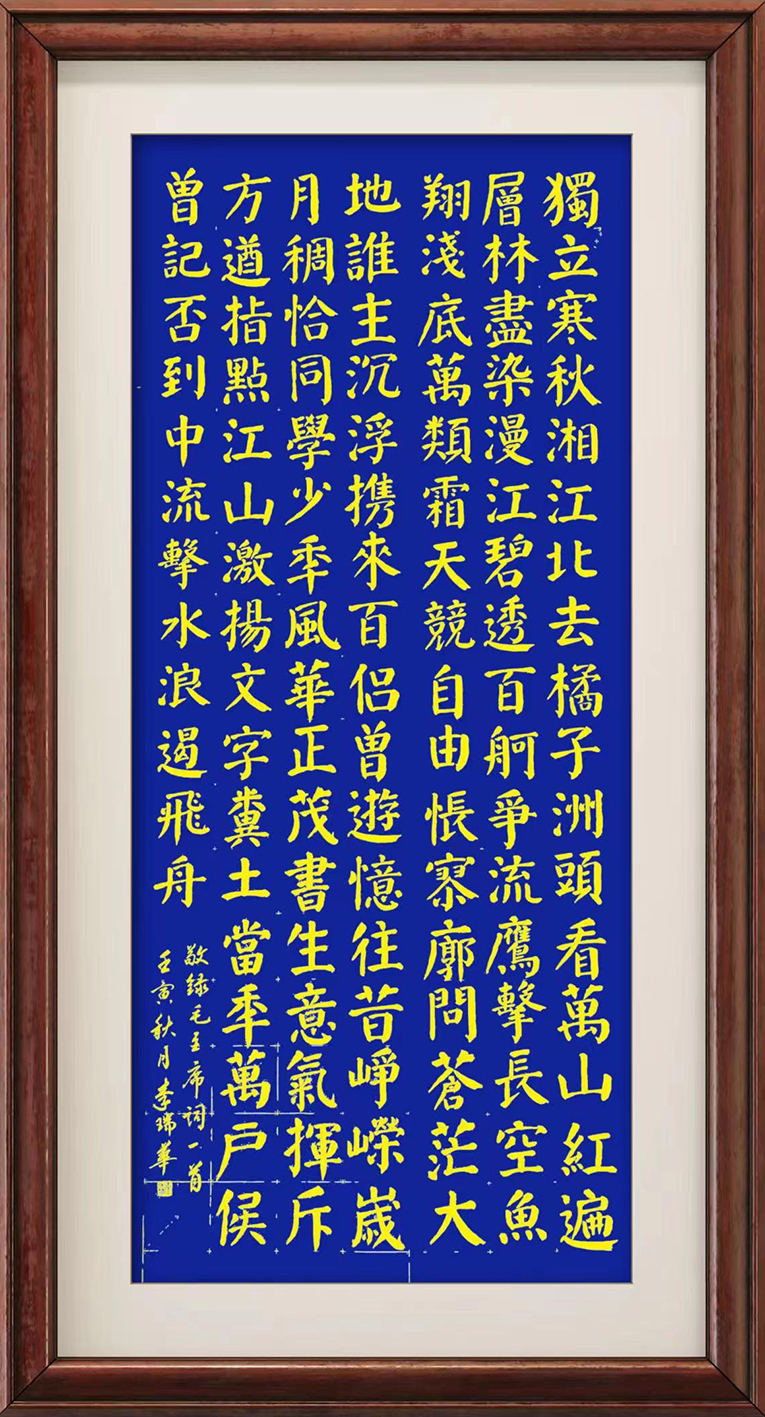 獨立寒秋湘江北去橘子洲頭看萬山紅遍
層林盡染漫江碧透百舸爭流鷹擊長空魚
翔淺底萬類霜天競自由悵寥廓問蒼茫大
地誰主沉浮携來百侣曾遊憶往昔崢嶸歲
月稠恰同學少秊風華正茂書生意氣揮斥
方遒指點江山激揚文字糞土當秊萬户侯
曾記否到中流擊水浪遏飛舟
敬録毛主席詞一首
壬寅秋月李瑞華